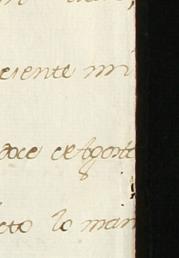 ciente mi
doce de Agosto
cto lo man